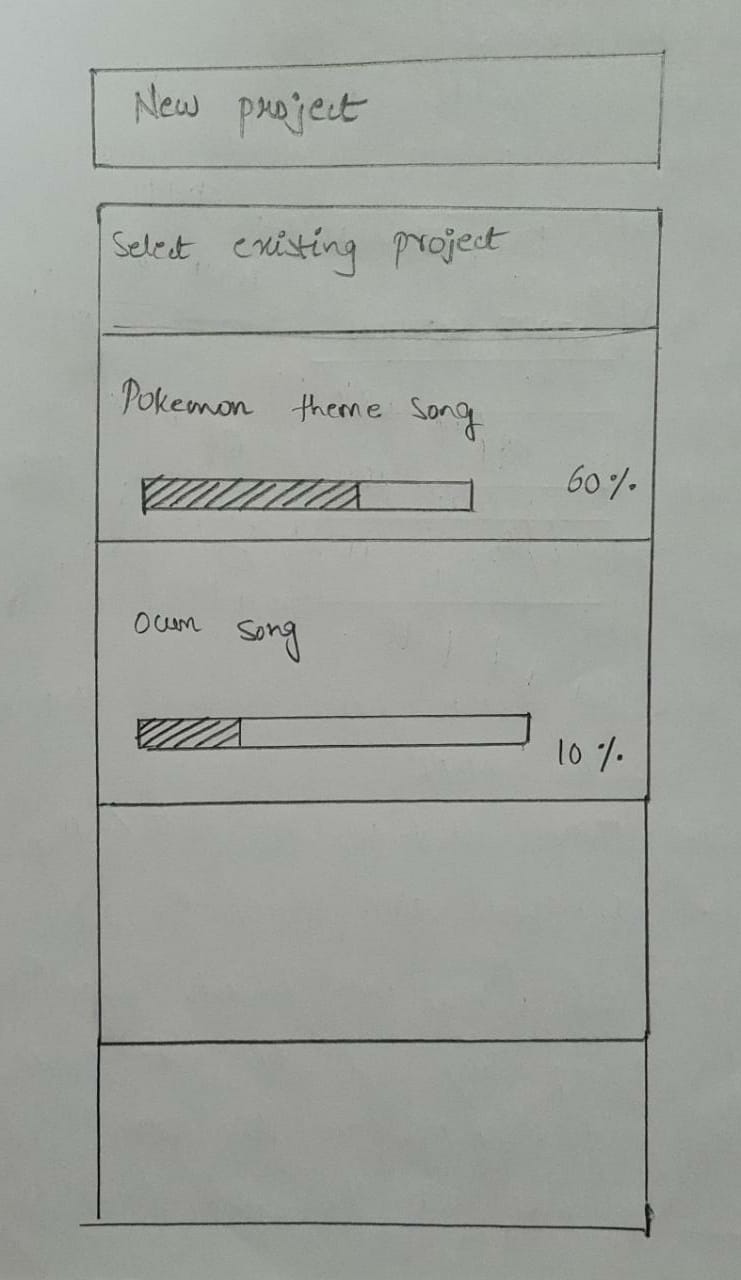 New project
Select existing project
Pokemon theme song
60%
own song
10%